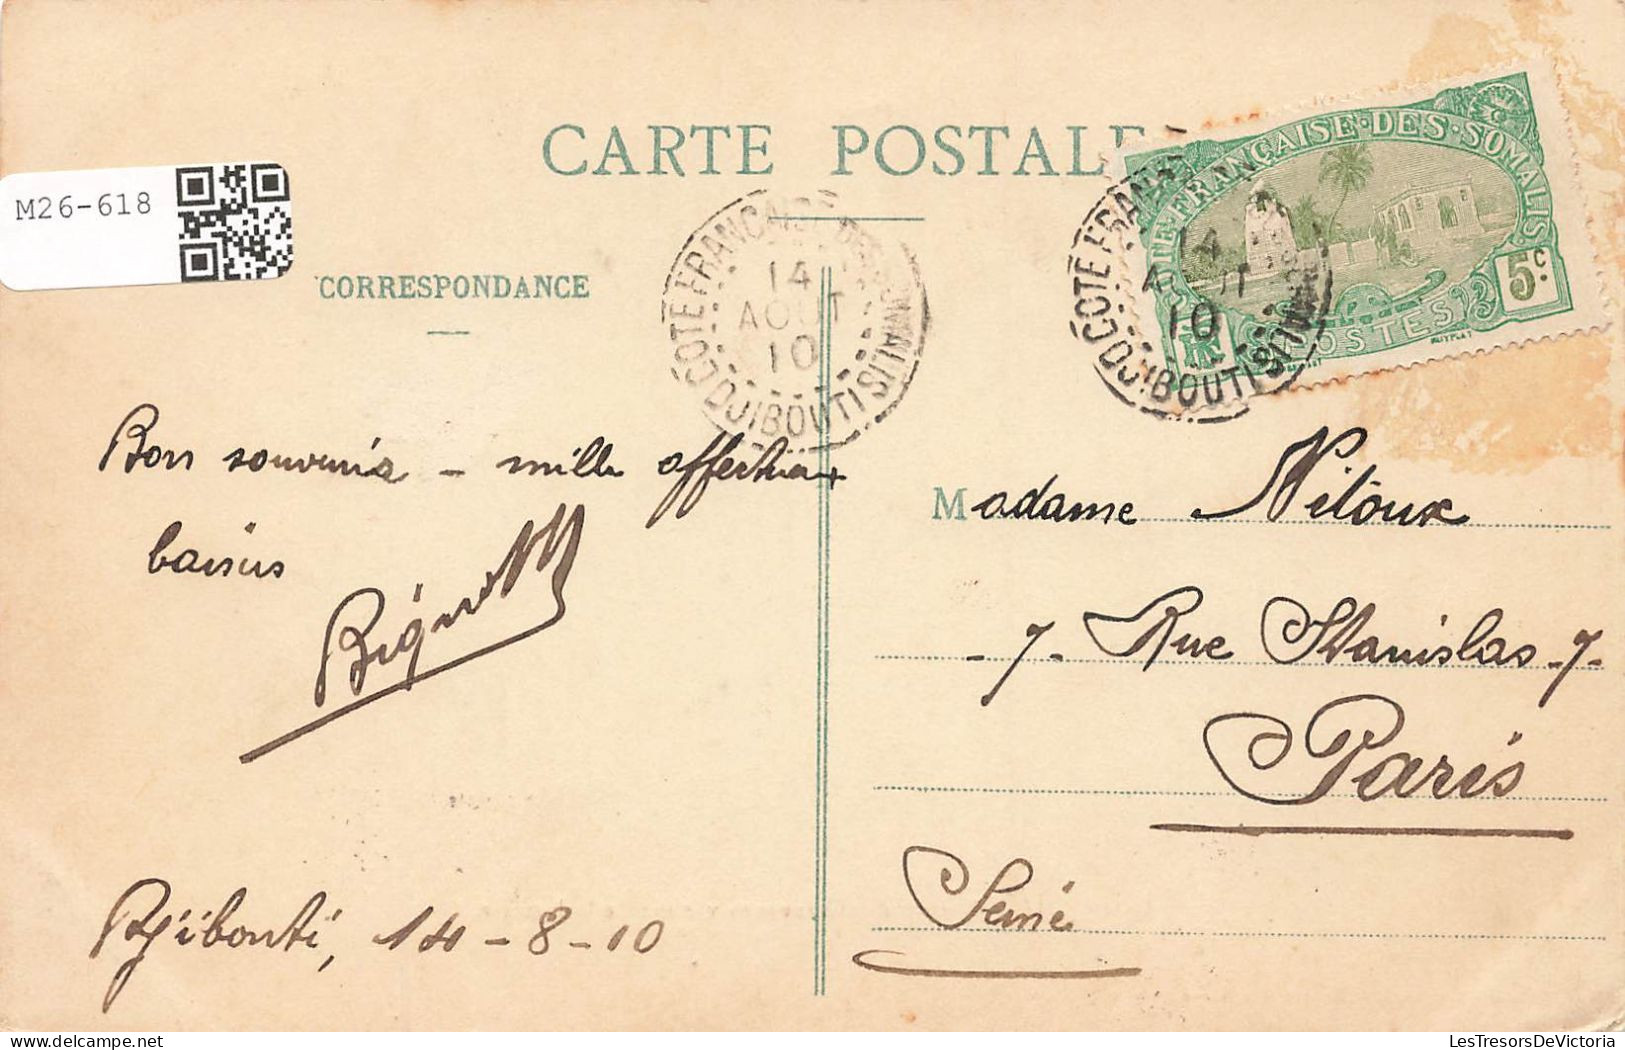 M26-618
CARTE POSTALE
CÔTE FRANÇAISE DES SOMALIS
5c.
POSTES
CORRESPONDANCE
CÔTE FRANÇAISE DES SOMALIS
14
AOUT
10
DJIBOUTI
CÔTE FRANÇAISE
14
AOUT
10
DJIBOUTI
Bon souvenir - mille affectueux
baisers
Madame Nitoux
-7- Rue Stanislas -7-
Paris
Seine
Djibouti, 14-8-10
LesTresorsDeVictoria